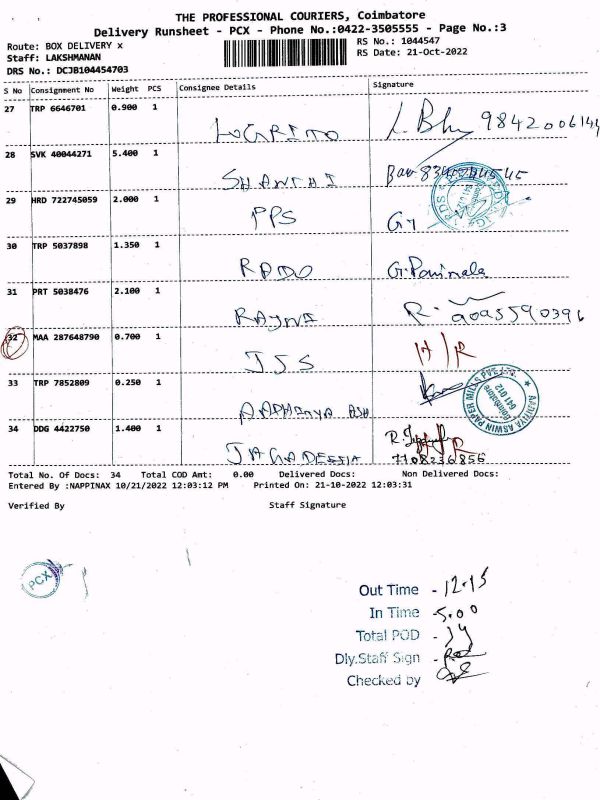 THE PROFESSIONAL COURIERS, Coimbatore
Delivery Runsheet - PCX - Phone No.:0422-3505555 - Page No.:3
Route: BOX DELIVERY x
RS No.: 1044547
Staff: LAKSHMANAN
RS Date: 21-Oct-2022
DRS No.: DCJB104454703
S No Consignment No Weight PCS Consignee Details Signature
27 TRP 6646701 0.900 1
28 SVK 40044271 5.400 1
SHANTHI
29 HRD 722745059 2.000 1
PPS
30 TRP 5037898 1.350 1
RADO
31 PRT 5038476 2.100 1
9095590396
32 MAA 287648790 0.700 1
JSS H/R
33 TRP 7852809 0.250 1
ADITIYA ASWIN PAPER MILLS
Coimbatore
641 012
34 DDG 4422750 1.400 1
7708236856
Total No. Of Docs: 34 Total COD Amt: 0.00 Delivered Docs: Non Delivered Docs:
Entered By :NAPPINAX 10/21/2022 12:03:12 PM Printed On: 21-10-2022 12:03:31
Verified By Staff Signature
PCX
Out Time - 12.15
In Time - 5.00
Total POD -
Dly.Staff Sign -
Checked by